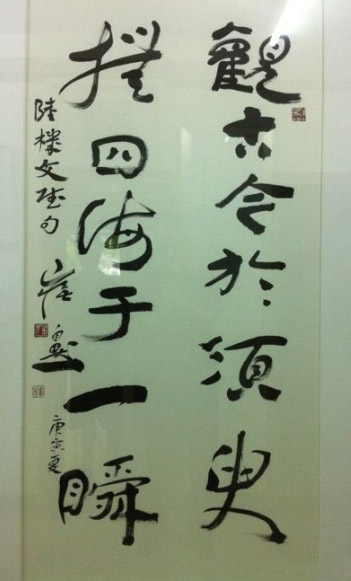 觀古今於須臾
撫四海于一瞬
陸機文賦句
崔自默
庚寅夏